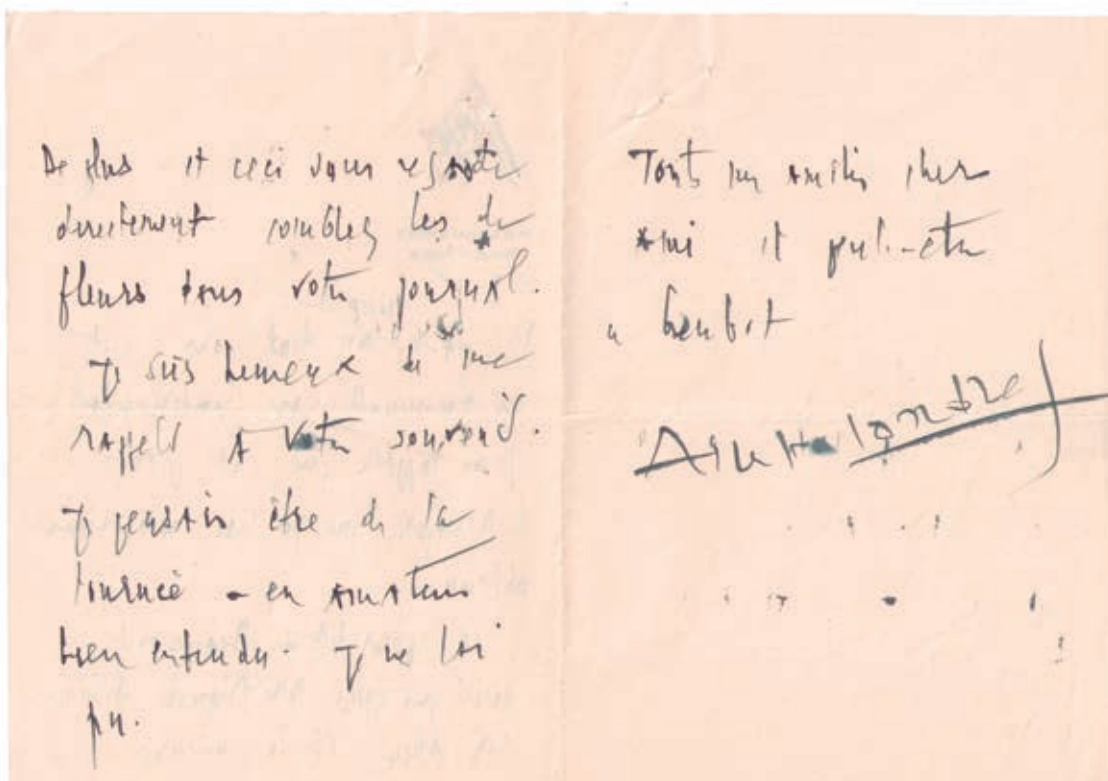 De plus et ceci vous regarde
directement comblez les de
fleurs dans votre journal.
Je suis heureux de me
rappeler à votre souvenir.
Je pensais être de la
tournée - en amateur
bien entendu. Je ne l'ai
pu.
Toutes mes amitiés cher
ami et peut-être
à bientôt
Londres